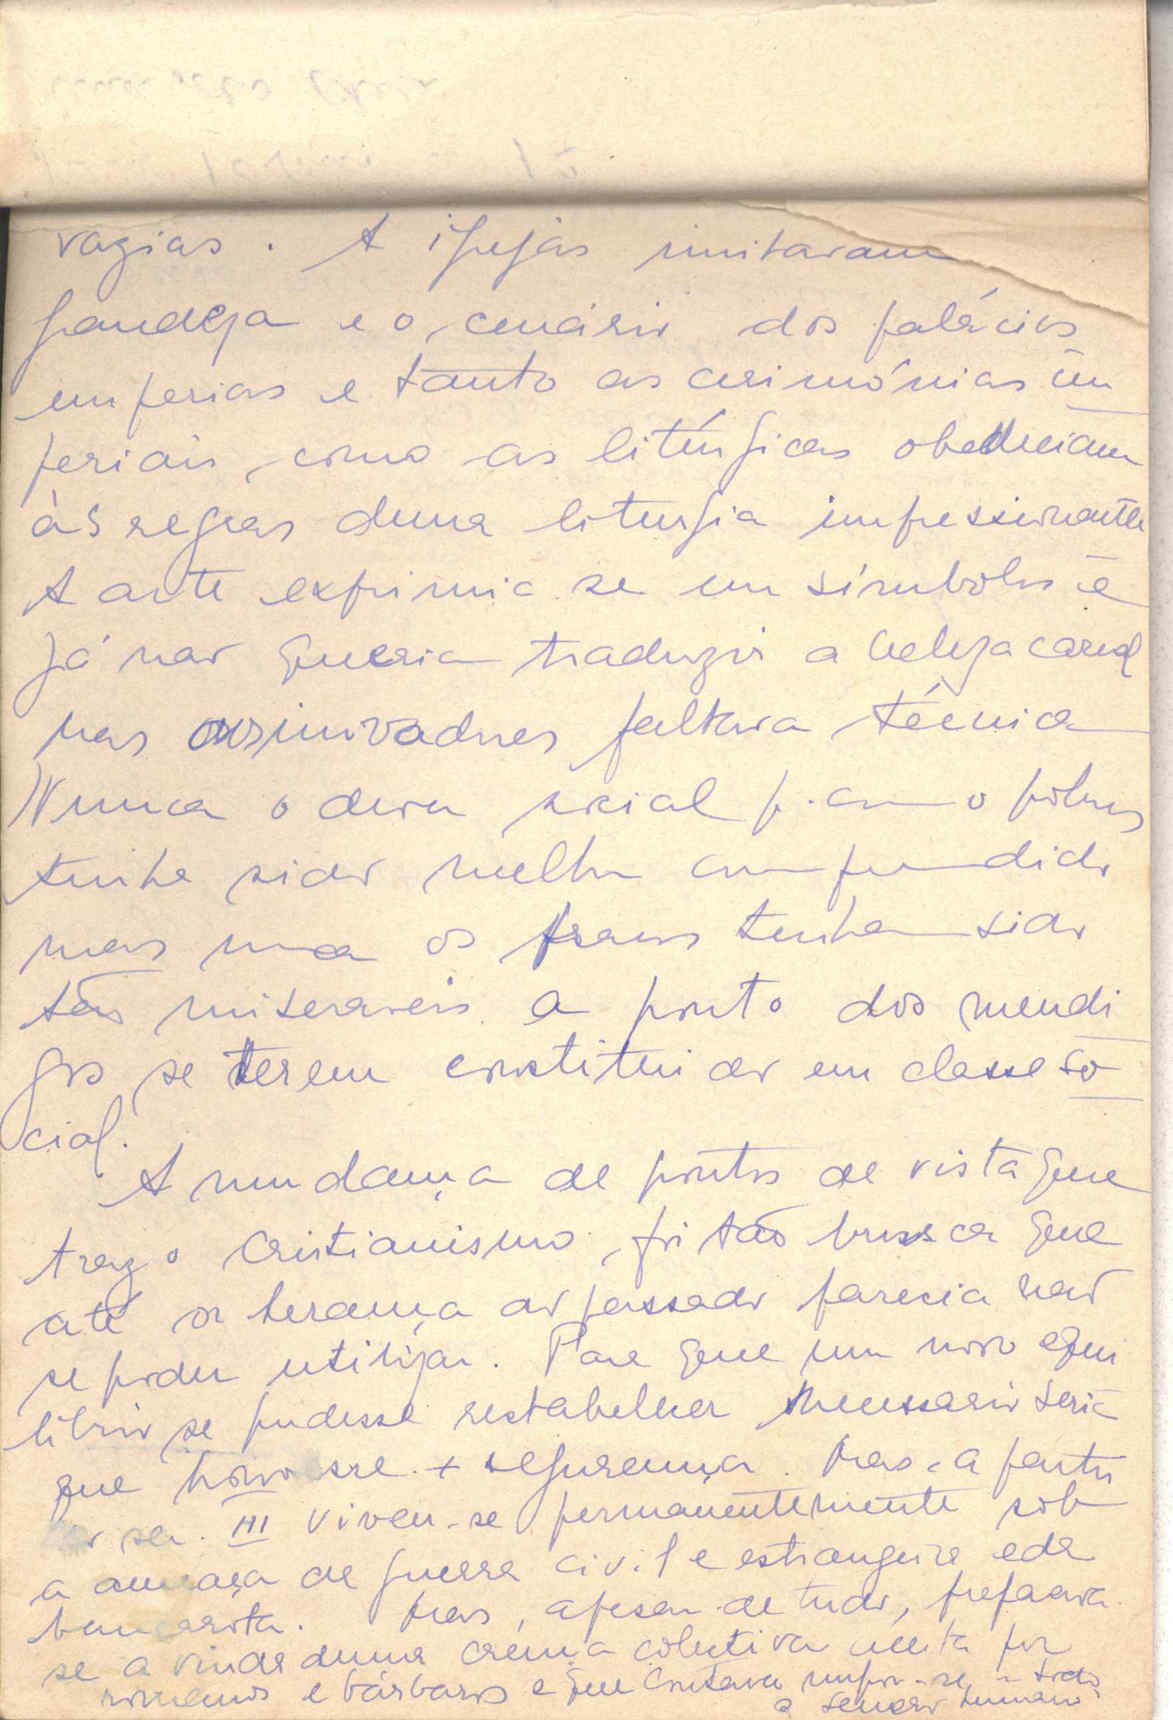 vazias. A igrejas imitaram
grandeza e o cenário dos palácios
imperias e tanto as cerimónias im
periais, como as litúrgicas obedeciam
às regras duma liturgia impressionante
A arte exprimia-se em símbolos e
já não queria traduzir a beleza carnal
nas faltava técnica
Nunca o dever social p. com o pobres
tinha sido melhor compreendido
mas nunca os fracos tinham sido
tão miseraveis a ponto dos mendi
gos se terem constituido em classe so
cial.
A mudança de pontos de vista que
traz o Cristianismo, foi tão brusca que
até a herança do passado parecia não
se poder utilizar. Para que um novo equi
líbrio se pudesse restabelecer necessario seria
que houvesse + segurança. Mas, a partir
do séc. III viveu-se permanentemente sob
a ameaça de guerra civil e estrangeira e da
bancarrota. Mas, apesar de tudo, preparava-
se a vinda duma crença colectiva aceita por
romanos e bárbaros e que impor-se a todo
o humano